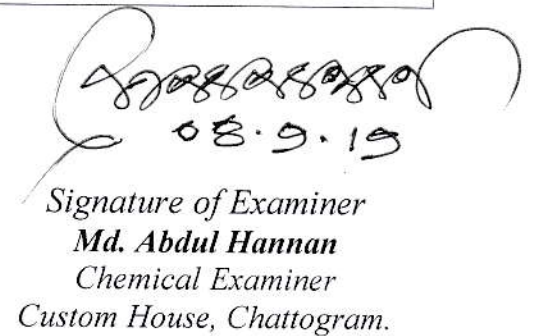 08.9.19
Signature of Examiner
Md. Abdul Hannan
Chemical Examiner
Custom House, Chattogram.